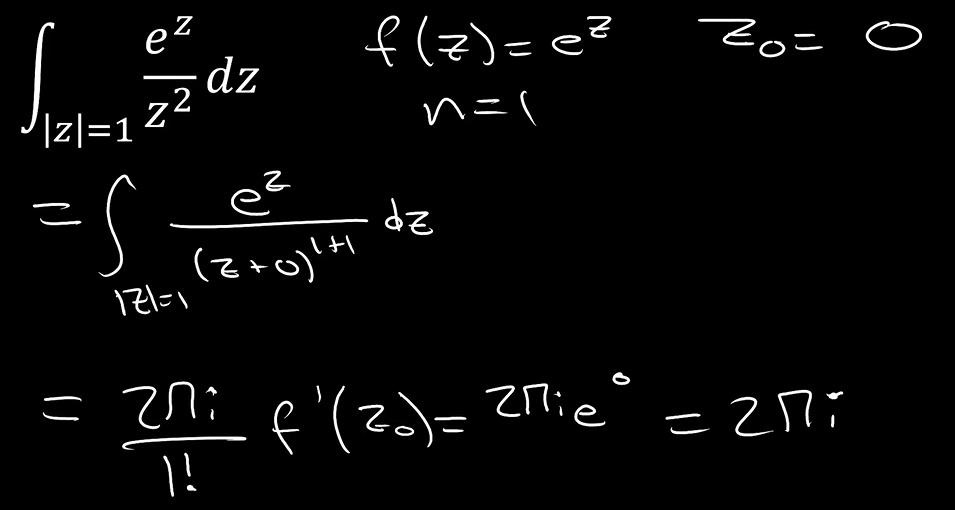 ∫_{|z|=1} e^z/z^2 dz   f(z)=e^z   z_0=0
n=1
=∫_{|z|=1} e^z/(z+0)^{1+1} dz
=2πi/1! f'(z_0)=2πie^0=2πi